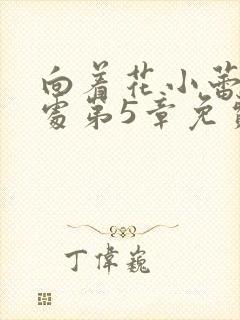 向着花小蕾
处第5章免费
丁偉巍